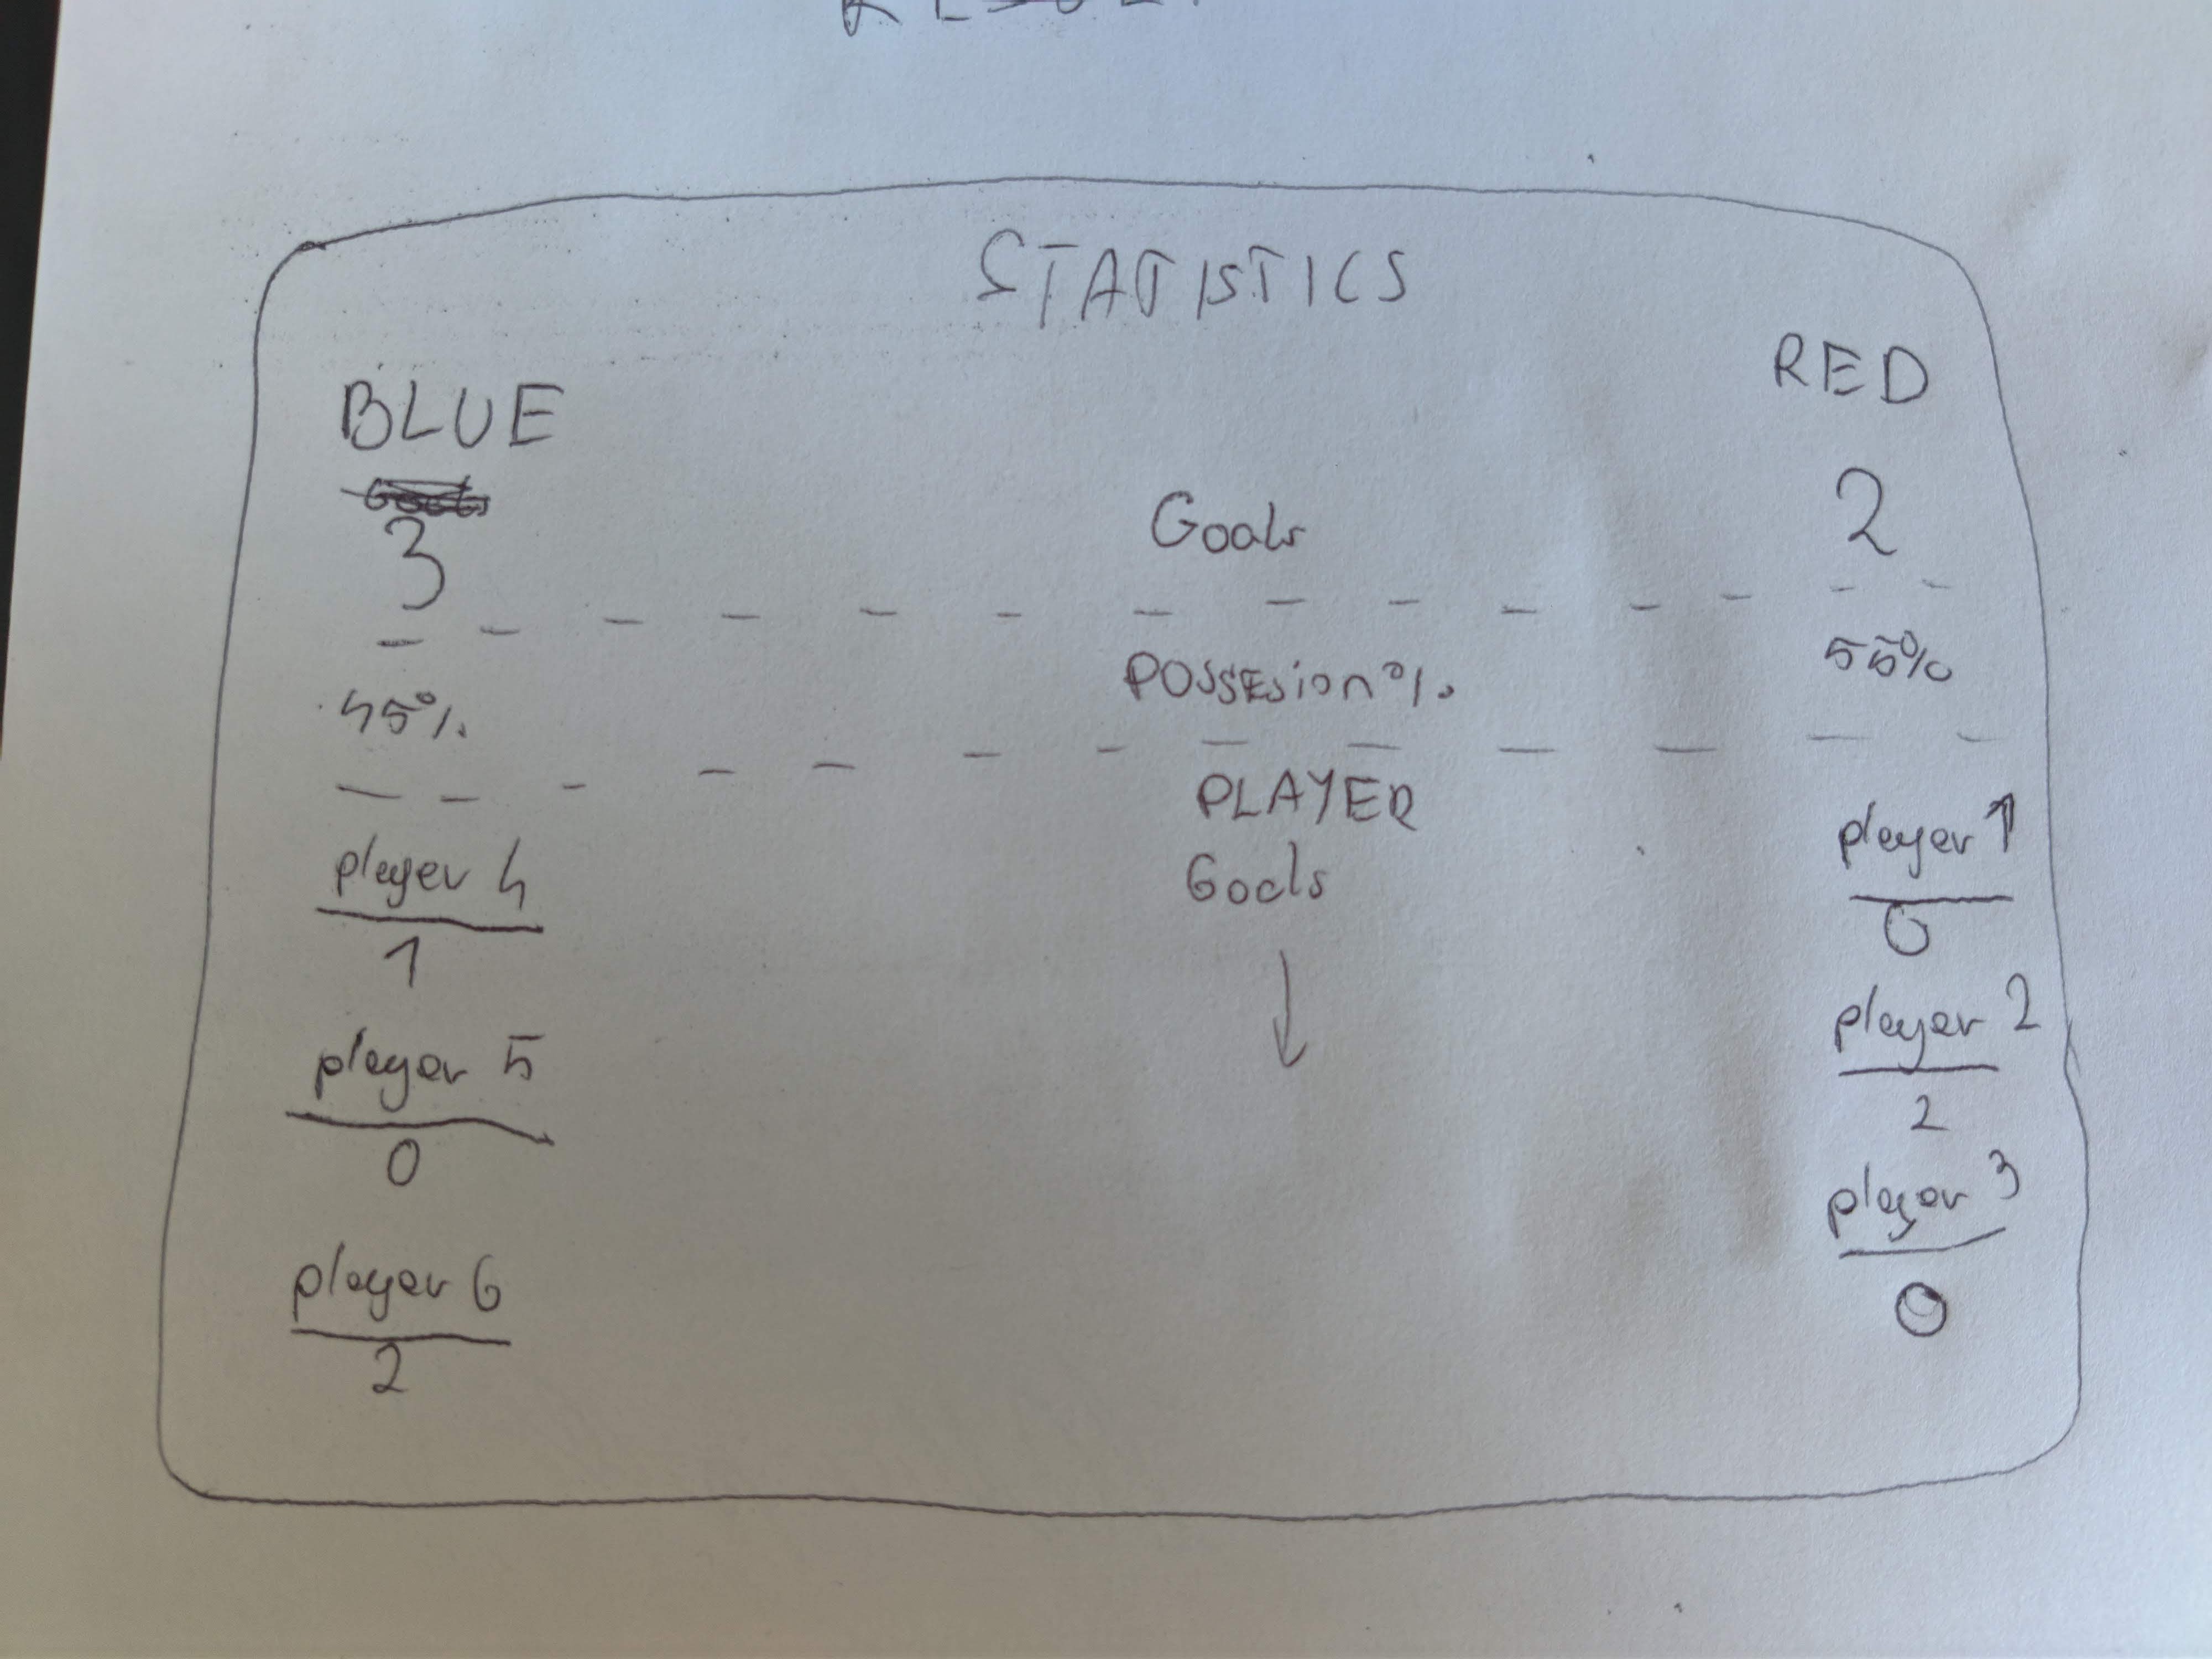 STATISTICS
BLUE RED
3 Goals 2
45% POSSESion% 55%
PLAYER
Goals
player 4 player 1
1 0
player 5 player 2
0 2
player 6 player 3
2 0